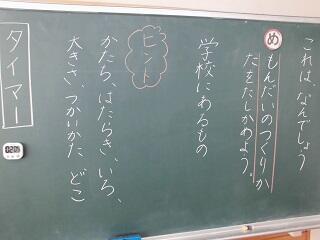 これは、なんでしょう
め
もんだいのつくりか
たをたしかめよう。
学校にあるもの
ヒント
かたち、はたらき、いろ、
大きさ、つかいかた、どこ
タイマー